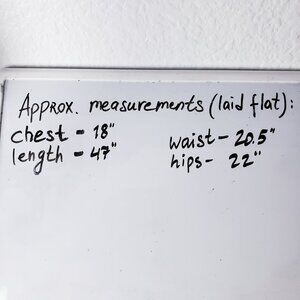 Approx. measurements (laid flat):
chest - 18"
length - 47"
waist - 20.5"
hips - 22"